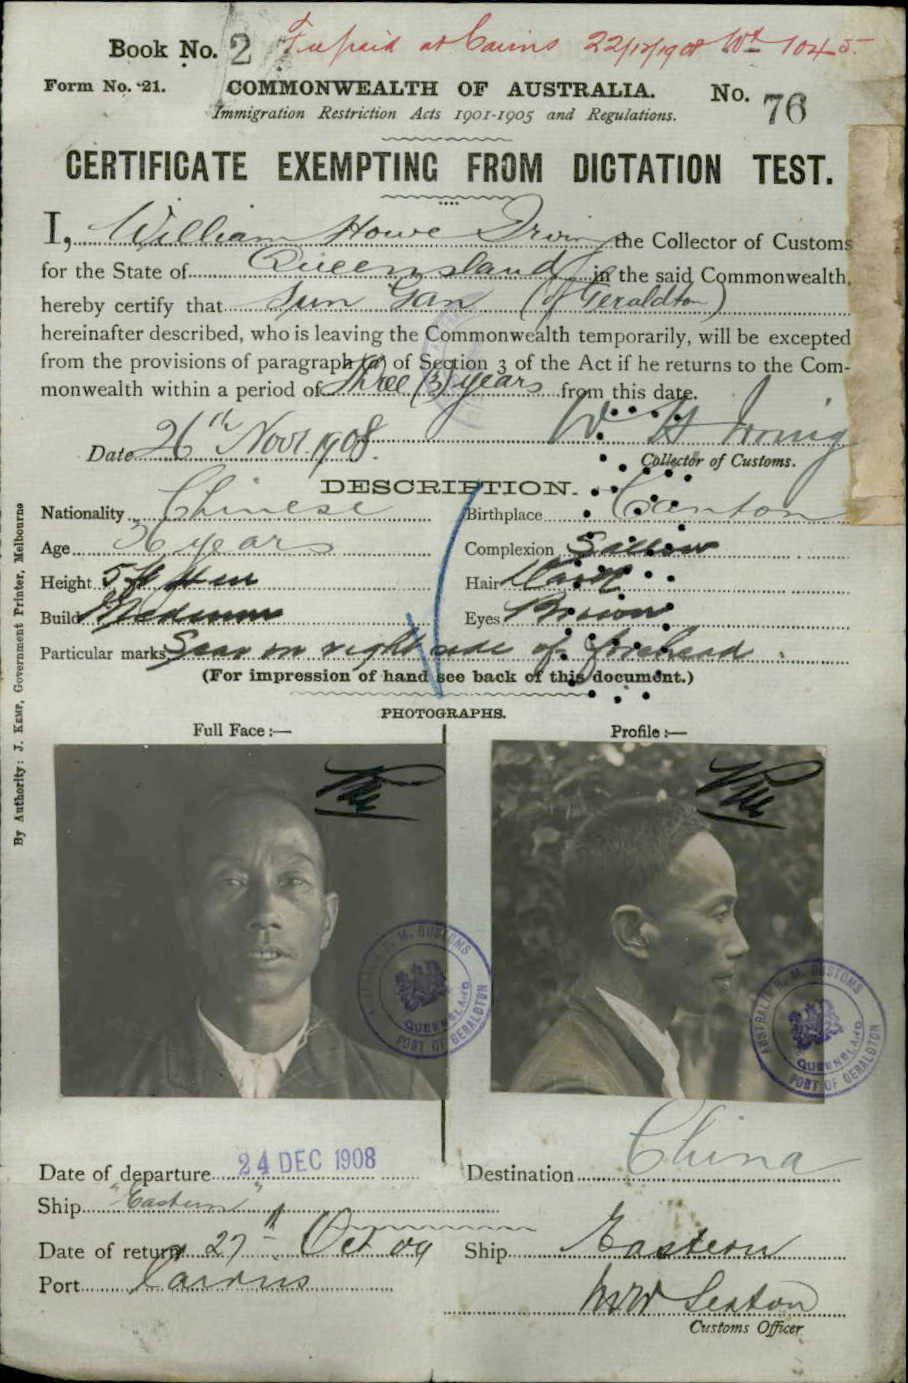 Book No. 2 Fee paid at Cairns 22/12/1908 1045
Form No. 21. COMMONWEALTH OF AUSTRALIA. No. 76
Immigration Restriction Acts 1901-1905 and Regulations.
CERTIFICATE EXEMPTING FROM DICTATION TEST.
I, William Howe Irving the Collector of Customs
for the State of Queensland in the said Commonwealth,
hereby certify that Sun Gan (of Geraldton)
hereinafter described, who is leaving the Commonwealth temporarily, will be excepted
from the provisions of paragraph (a) of Section 3 of the Act if he returns to the Com-
monwealth within a period of Three (3) years from this date.
W H Irving
Date 26th Novr. 1908.
Collector of Customs.
DESCRIPTION.
Nationality Chinese Birthplace Canton
Age 36 years Complexion Sallow
Height 5ft 4in Hair
Build Medium Eyes Brown
Particular marks Scar on right side of forehead
(For impression of hand see back of this document.)
PHOTOGRAPHS.
Full Face :— Profile :—
By Authority: J. KEMP, Government Printer, Melbourne
AUSTRALIA H. M. CUSTOMS
QUEENSLAND
PORT OF GERALDTON
AUSTRALIA H. M. CUSTOMS
QUEENSLAND
PORT OF GERALDTON
Date of departure 24 DEC 1908 Destination China
Ship "Eastern"
Date of return 27th Oct 09 Ship Eastern
Port Cairns
Sexton
Customs Officer